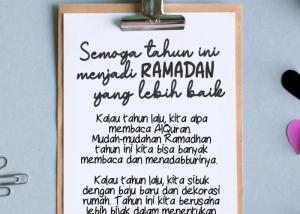 Semoga tahun ini
menjadi RAMADAN
yang lebih baik
Kalau tahun lalu, kita alpa
membaca AlQuran.
Mudah-mudahan Ramadhan
tahun ini kita bisa banyak
membaca dan menadabburinya.
Kalau tahun lalu, kita sibuk
dengan baju baru dan dekorasi
rumah. Tahun ini kita berusaha
lebih bijak dalam menentukan